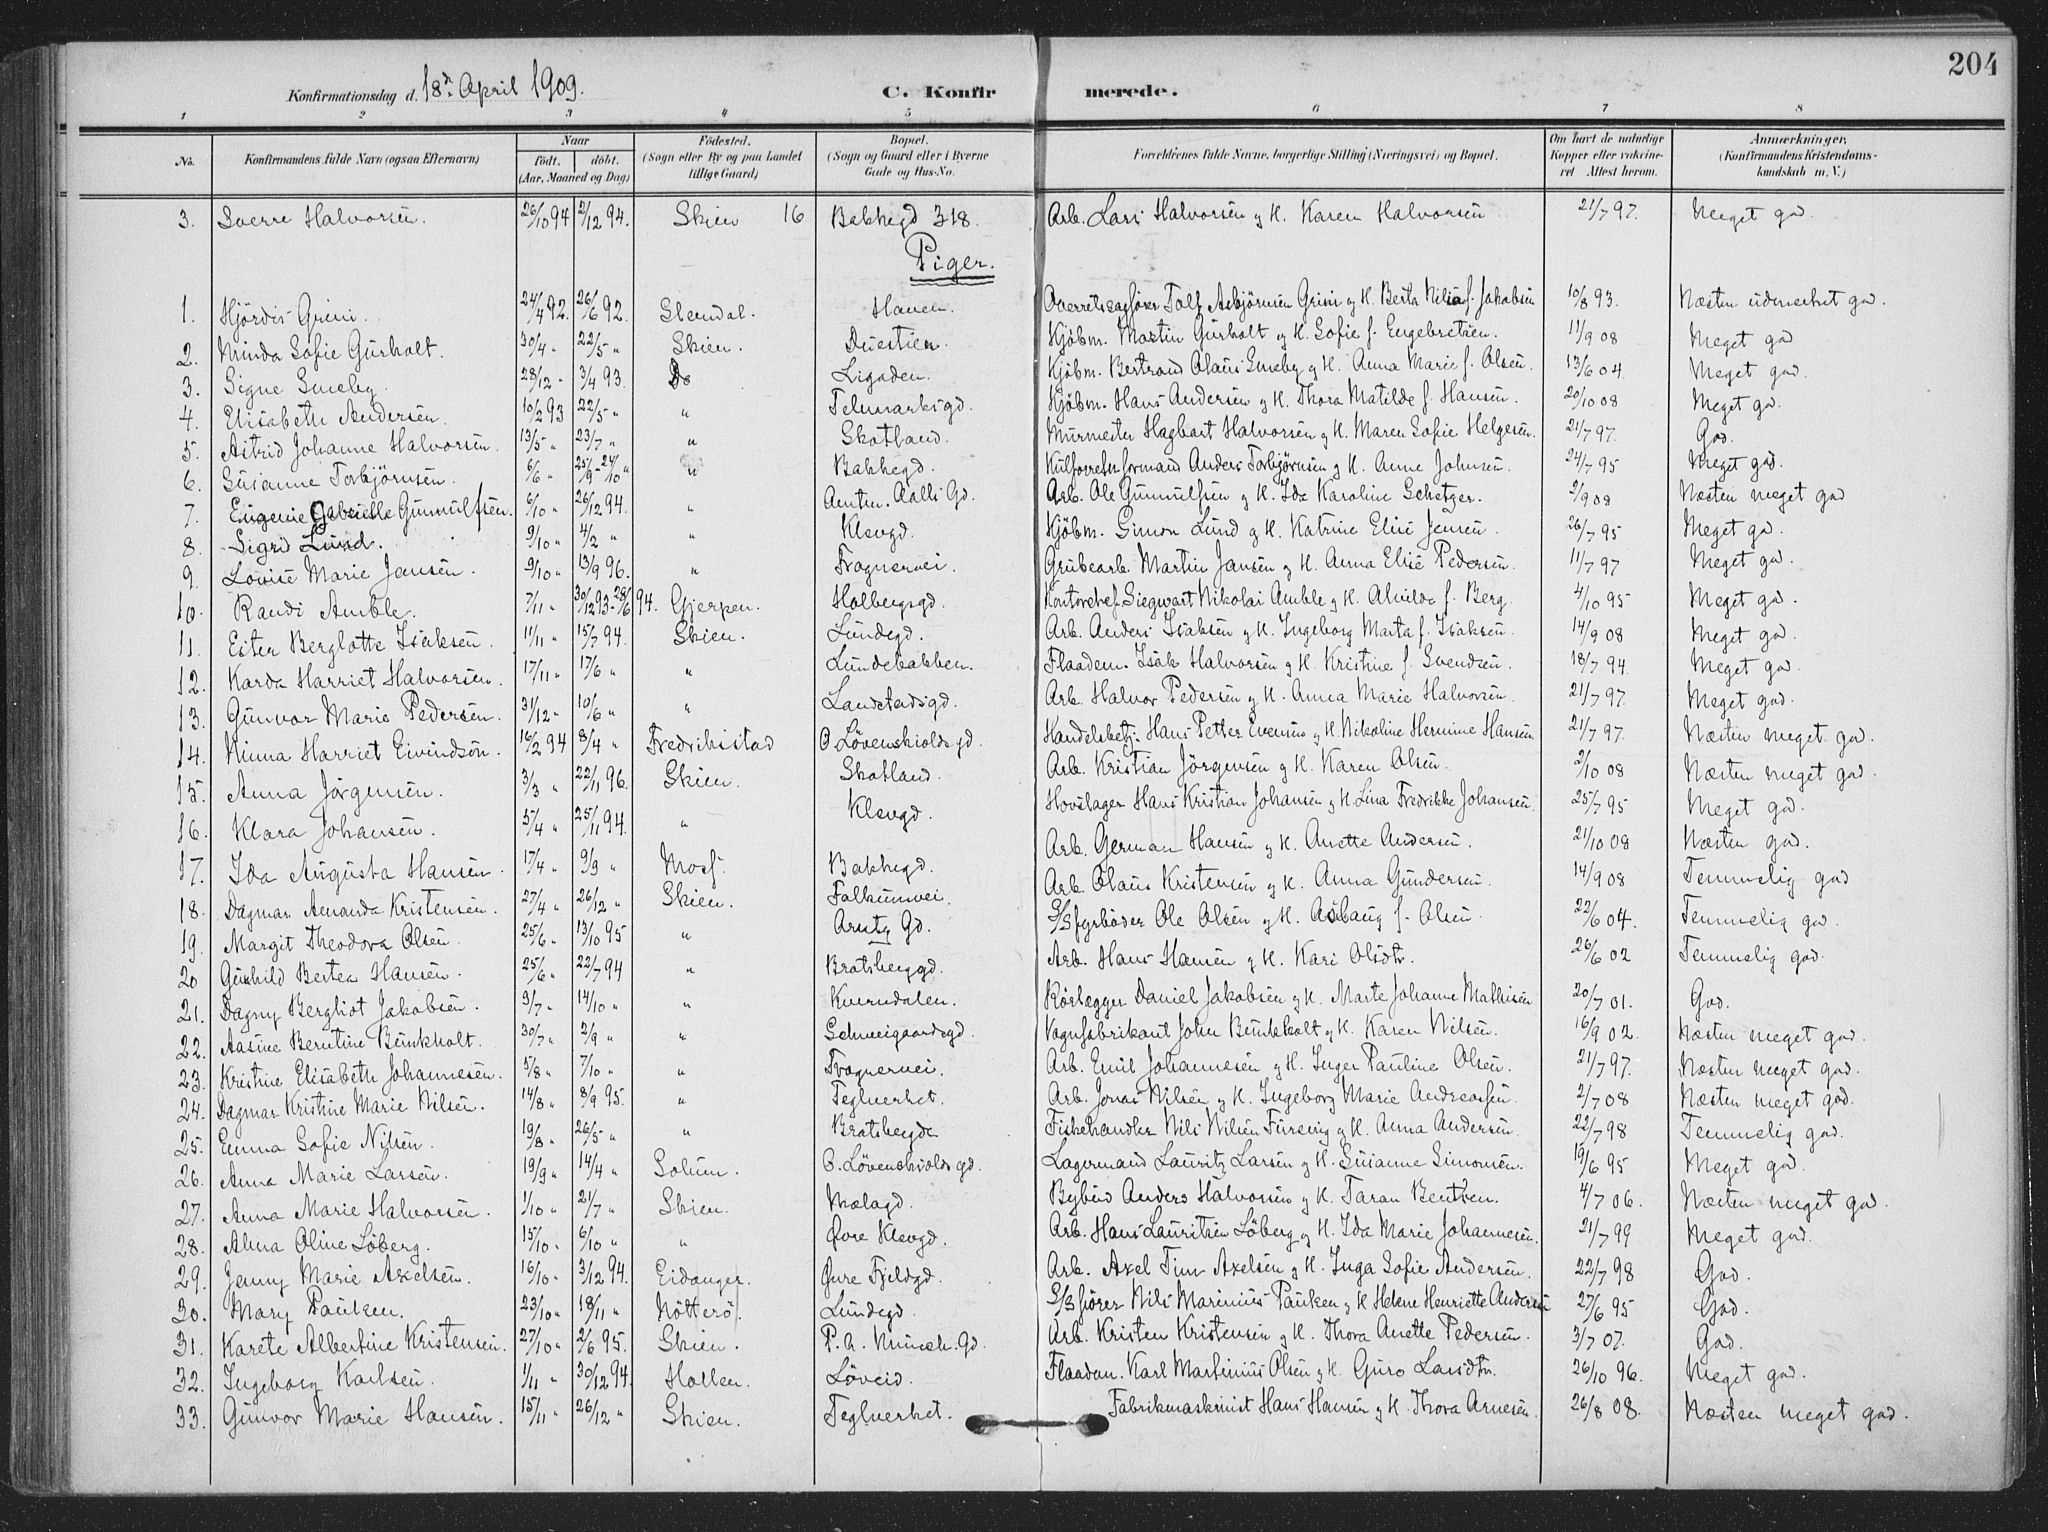 204
Konfirmationsdag d. 18d. April 1909. C. Konfirmerede.
1 2 3 4 5 6 7 8
No. Konfirmandens fulde Navn (ogsaa Efternavn) Naar födt. döbt. (Aar, Maaned og Dag) Födested. (Sogn eller By og paa Landet tillige Gaard) Bopæl. (Sogn og Gaard eller i Byerne Gade og Hus-No. Forældrenes fulde Navne, borgerlige Stilling (Næringsvei) og Bopæl. Om havt de naturlige Kopper eller vakcineret. Attest herom. Anmærkninger. (Konfirmandens Kristendomskundskab m. V.)
3. Sverre Halvorsen. 26/10 94 2/12 94. Skien 16 Bakkegd 318. Arb. Lars Halvorsen og H. Karen Halvorsen 21/7 97. Meget god.
Piger.
1. Hjördis Grini. 24/4 92. 26/6 92. Skendal. Haven. Overretssagförer Tolf Asbjörnsen Grini og H. Berta Nilia f. Jakobsen 10/8 93. Næsten udmerket god.
2. Minda Sofie Gurholt. 30/4 " 22/5 " Skien. Duestien. Kjöbm. Martin Gurholt og H. Sofie f. Engebretsen. 11/9 08 Meget god
3. Signe Smeby. 28/12 - 3/4 93. Do Ligaden. Kjöbm. Bertrand Olaus Smeby og H. Anna Marie f. Olsen. 13/6 04. Meget god.
4. Elisabeth Andersen. 10/2 93 22/5 " " Telemarksgd. Kjöbm. Hans Andersen og H. Thora Matilde f. Hansen. 20/10 08 Meget god.
5. Astrid Johanne Halvorsen. 13/5 " 23/7 " " Skotland. Murmester Hagbart Halvorsen og H. Maren Sofie Helgesen. 21/7 97. God.
6. Susanne Torbjörnsen. 6/6 " 25/9 - 24/10 " " Bakkegd. Anders Torbjörnsen og H. Anne Johnsen. 24/7 95 Meget god.
7. Eugenie Gabrielle Gunnulfsen. 6/10 " 26/12 94. " Amtm. Aalls Gd. Arb. Ole Gunnulfsen og H. Ida Karoline Schetzer. 2/9 08 Næsten meget god
8. Sigrid Lund. 9/10 " 4/2 " " Klevgd. Kjöbm. Simon Lund og H. Katrine Elise Jensen. 26/7 95 Meget god.
9. Lovise Marie Jansen. 9/10 " 13/9 96. " Frognervei. Grubearb. Martin Jansen og H. Anna Elise Pedersen. 11/7 97 Meget god.
10. Randi Amble. 7/11 " 30/12 93 - 28/6 94. Gjerpen. Holbergsgd. Kontorchef Siegwart Nikolai Amble og H. Alvilde f. Berg. 4/10 95 Meget god.
11. Ester Berglotte Isaksen. 11/11 " 15/7 94. Skien. Lundegd. Arb. Anders Isaksen og H. Ingeborg Marta f. Isaksen. 14/9 08 Meget god.
12. Karda Harriet Halvorsen. 17/11 " 17/6 " " Lundebakken. Flaadem. Isak Halvorsen og H. Kristine f. Svendsen. 18/7 94. Meget god.
13. Gunvor Marie Pedersen. 31/12 - 10/6 " " Landstadsgd. Arb. Halvor Pedersen og H. Anna Marie Halvorsen. 21/7 97. Meget god.
14. Minna Harriet Eivindson. 16/2 94 8/4 " Fredrikstad O. Lövenskioldsgd. Handelsbetj. Hans Petter Evensen og H. Nikoline Hermine Hansen 21/7 97. Næsten meget god.
15. Anna Jörgensen. 3/3 " 22/11 96. Skien. Skotland. Arb. Kristian Jörgensen og H. Karen Olsen. 2/10 08 Næsten meget god.
16. Klara Johansen. 5/4 " 25/11 94. " Klevgd. Hovslager Hans Kristian Johansen og H. Lina Fredrikke Johansen. 25/7 95 Meget god.
17. Ida Augusta Hansen. 17/4 " 9/9 " Moss. Bakkegd. Arb. German Hansen og H. Anette Andersen. 21/10 08 Næsten god.
18. Dagmar Amanda Kristensen. 27/4 " 26/12 " Skien. Falkumvei. Arb. Olaus Kristensen og H. Anna Gundersen. 14/9 08 Temmelig god
19. Margit Theodora Olsen. 25/6 - 13/10 95 " Arntz Gd. S/S fyrböder Ole Olsen og H. Aslaug f. Olsen. 22/6 04. Temmelig god.
20 Gunhild Bertea Hansen. 25/6 " 22/7 94 " Bratsberggd. Arb. Hans Hansen og H. Kari Olsdtr. 26/6 02 Temmelig god.
21. Dagny Bergliot Jakobsen. 9/7 " 14/10 " " Kverndalen. Rörlægger Daniel Jakobsen og H. Marte Johanne Mathisen 20/7 01. God.
22. Aasine Berntine Bunkholt. 30/7 " 2/9 " " Schweigaardsgd. Vognfabrikant John Bunkholt og H. Karen Nilsen. 16/9 02. Næsten meget god.
23. Kristine Elisabeth Johannesen. 5/8 " 7/10 " " Frognervei. Arb. Emil Johannesen og H. Inger Pauline Olsen. 21/7 97. Næsten meget god.
24. Dagmar Kristine Marie Nilsen. 14/8 " 8/9 95. " Teglverket. Arb. Jonas Nilsen og H. Ingeborg Marie Andreassen. 2/7 08 Næsten meget god.
25. Emma Sofie Nilsen. 19/8 " 26/5 " " Bratsbergde Fiskehandler Nils Nilsen Fureng og H. Anna Andersen. 22/7 98 Temmelig god.
26. Anna Marie Larsen. 19/9 " 14/4 " Solum. O. Lövenskioldsgd. Lagermand Lauritz Larsen og H. Susanne Simonsen. 19/6 95 Meget god.
27. Anna Marie Halvorsen. 1/10 " 21/7 " Skien. Mælagd. Bybud Anders Halvorsen og H. Taran Bentsen. 4/7 06. Næsten meget god.
28. Alma Oline Löberg. 15/10 " 6/10 " " Övre Klevgd. Arb. Hans Lauritsen Löberg og H. Ida Marie Johannesen. 21/7 99 Meget god.
29. Jenny Marie Axelsen. 16/10 " 3/12 94. Eidanger. Övre Fjeldgd. Arb. Axel Tim Axelsen og H. Inga Sofie Andersen. 22/7 98 God.
30. Mary Paulsen. 23/10 " 18/11 " Nötterö. Lundegd. S/S förer Nils Marinius Paulsen og H Helene Henriette Andersen 27/6 95 God.
31. Karete Albertine Kristensen. 27/10 " 2/6 95. Skien. P. A. Munch. Gd. Arb. Kristen Kristensen og H. Thora Anette Pedersen. 3/7 07. God.
32. Ingeborg Karlsen. 1/11 " 30/12 94. Hollen. Löveid. Flaadem. Karl Martinius Olsen og H. Guro Larsdtr. 26/10 96. Meget god.
33. Gunvor Marie Hansen. 15/11 " 26/12 " Skien. Teglverket. Fabrikmaskinist Hans Hansen og H. Thora Arnesen. 26/8 08. Næsten meget god.